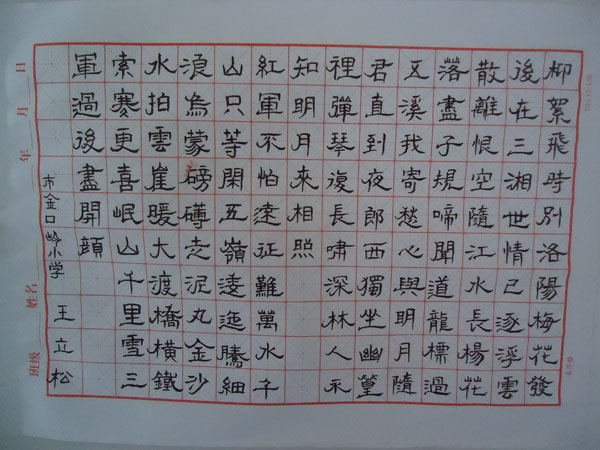 柳絮飛時別洛陽梅花發
後在三湘世情已逐浮雲
散離恨空隨江水長楊花
落盡子規啼聞道龍標過
五溪我寄愁心與明月隨
君直到夜郎西獨坐幽篁
裡彈琴復長嘯深林人不
知明月來相照
紅軍不怕遠征難萬水千
山只等閑五嶺逶迤騰細
浪烏蒙磅礴走泥丸金沙
水拍雲崖暖大渡橋橫鐵
索寒更喜岷山千里雪三
軍過後盡開顏
市金口岭小学 王立松
班级 姓名 年 月 日